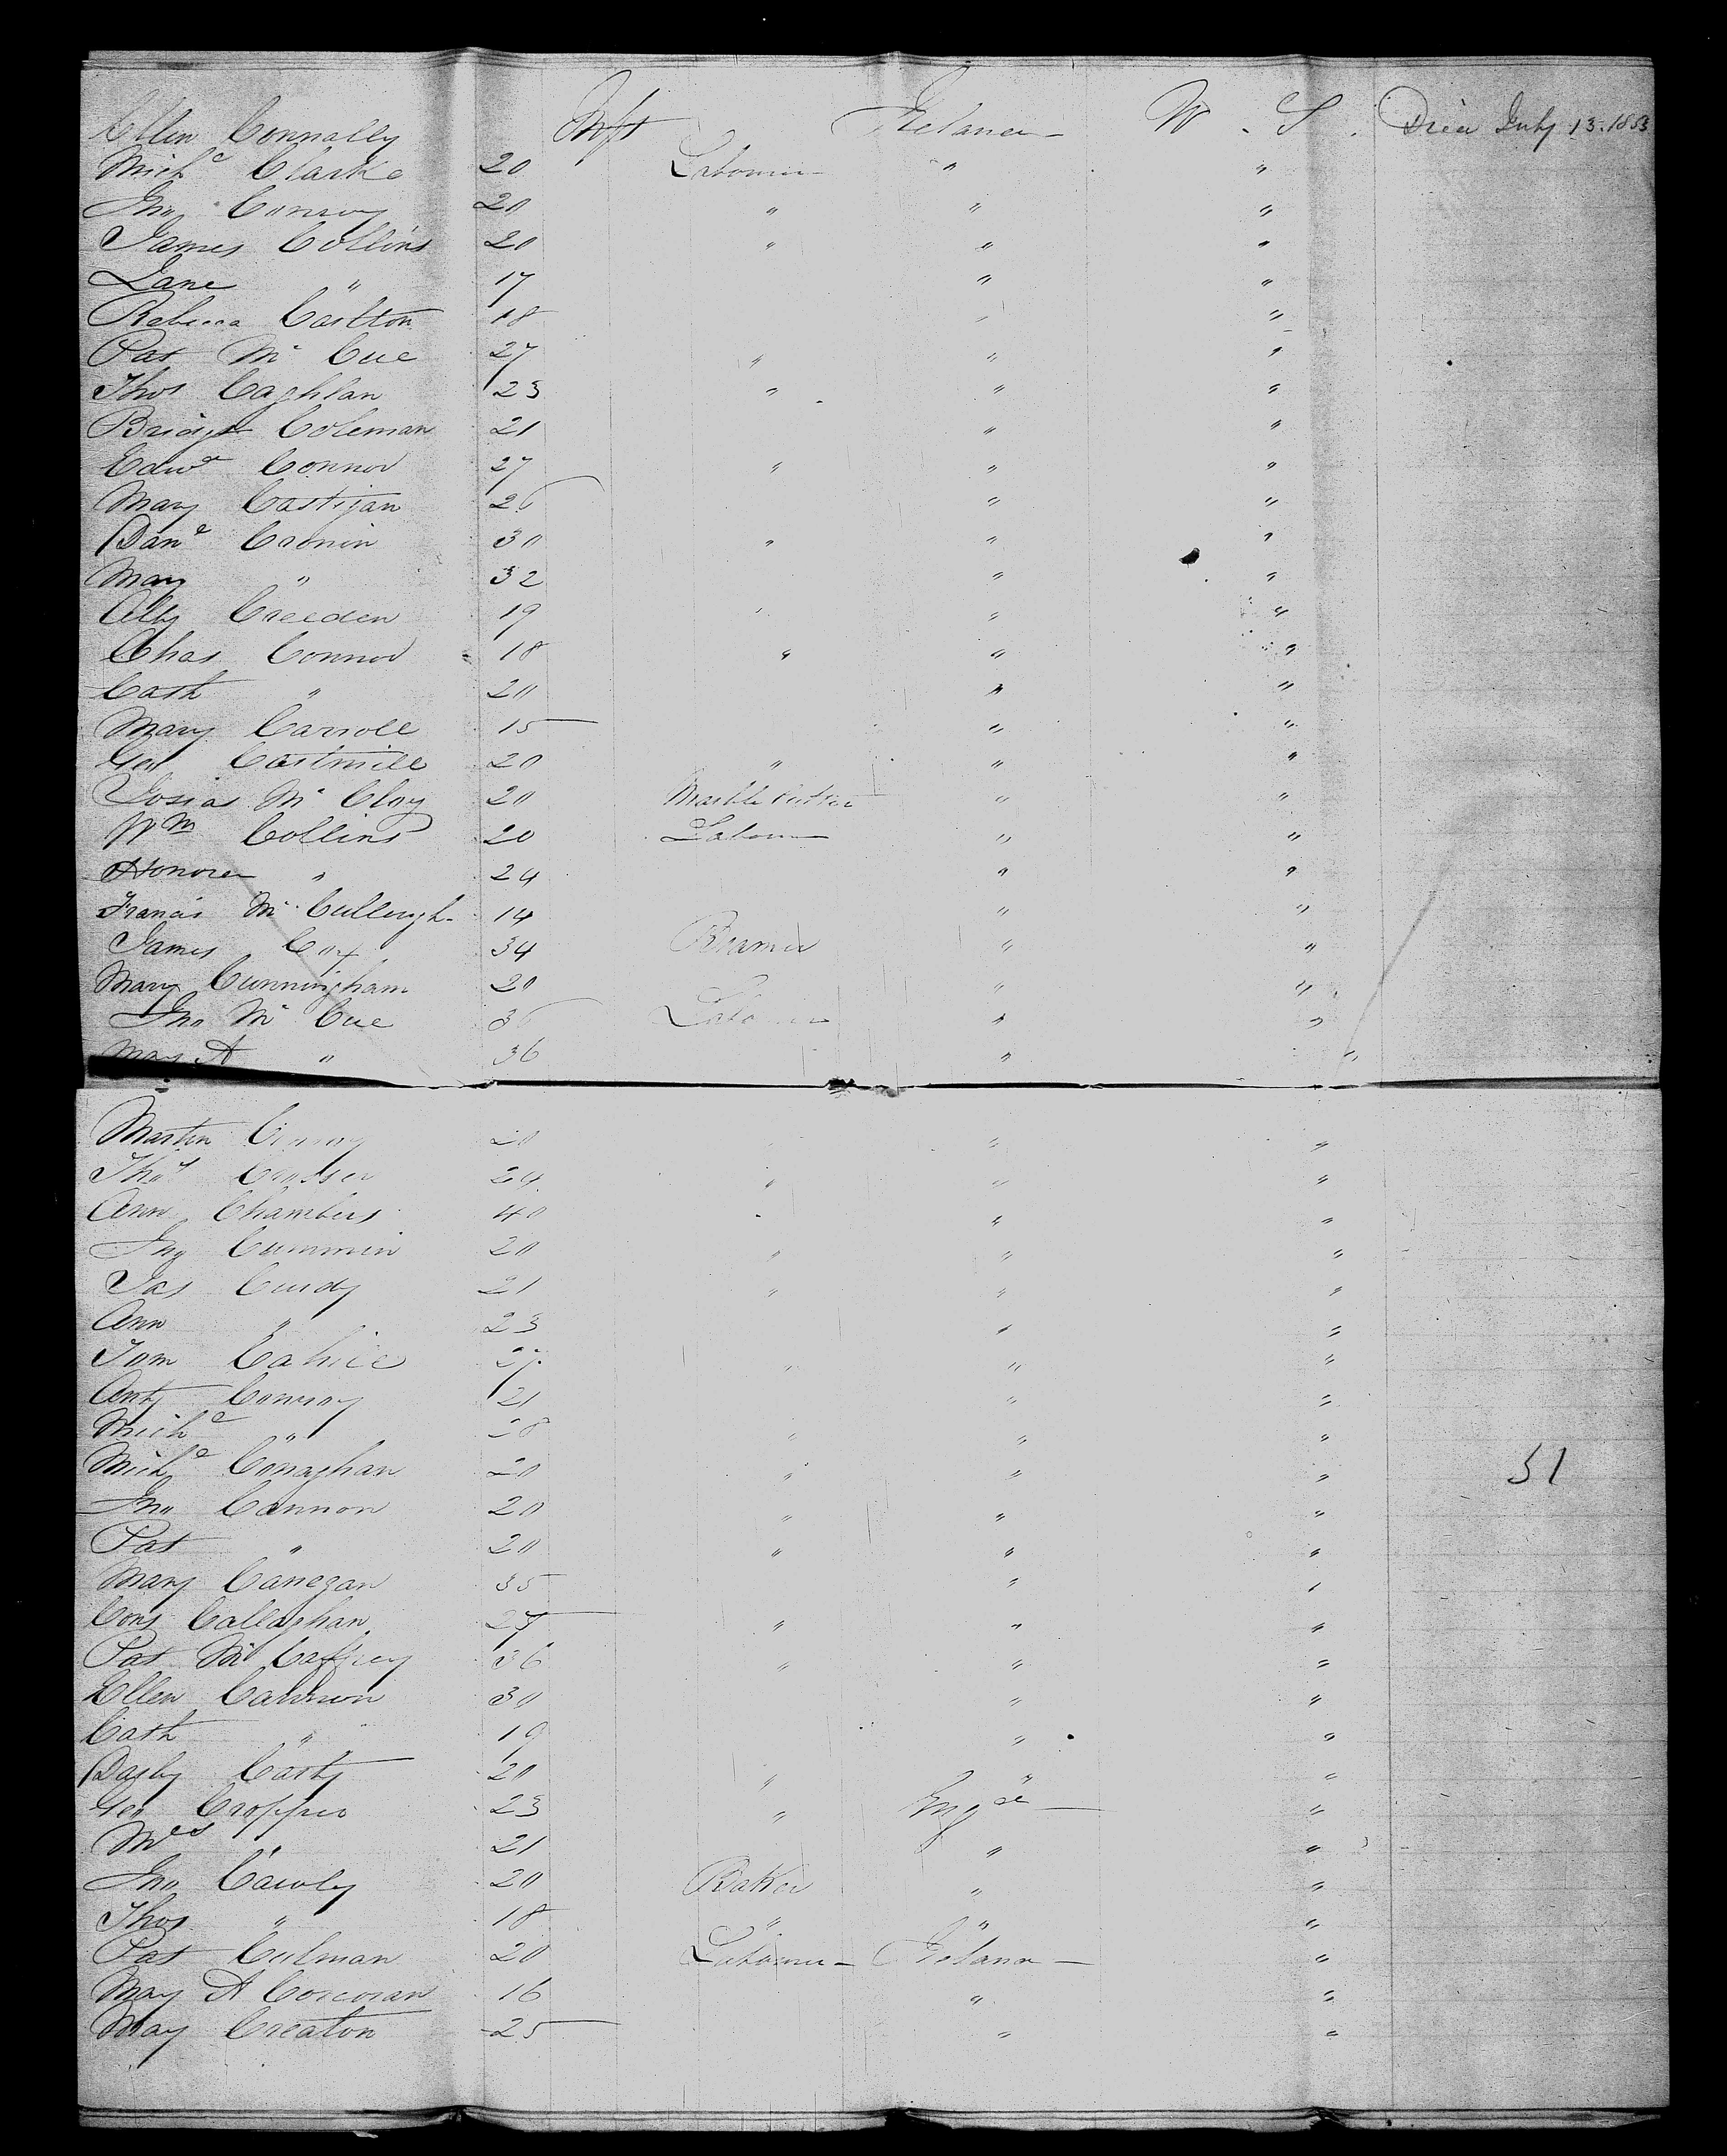 Ellen Connally Inft Ireland W. S. Died July 13. 1853
Mich<sup>l</sup> Clarke 20 Labourer " "
Jno Conroy 20 " " "
James Collins 20 " " "
Jane " 17 " "
Rebecca Carlton 18 " "
Pat Mc Cue 27 " " "
Thos Caghlan 23 " " "
Bridgt Coleman 21 " "
Edwd Connor 27 " " "
Mary Costigan 26 " "
Danl Cronin 30 " " "
Mary " 32 " "
Creeden 19 " " "
Chas Connor 18 " " "
Cath " 20 " "
Mary Carroll 15 " "
Geo 20 " " "
Josias Mc Cloy 20 Marble Cutter " "
Wm Collins 20 Labourer " "
Honora " 24 " "
Francis Mc Cullough 14 " "
James Coy 34 " "
Mary Cunningham 20 " "
Jno Mc Cue 36 Labourer " "
Mary A " 36 " "
Martin Conroy 20 " "
Thos 24 " " "
Ann Chambers 40 " " "
Jno Cummin 20 " " "
Jas Curdy 21 " " "
Ann " 23 " "
Tom Cahill " " "
Anty Conroy 21 " "
Michl " 28 " " "
Michl Conaghan 20 " " " 51
Jno Cannon 20 " " "
Pat " 20 " " "
Mary Canegan 35 " "
Cons Callaghan 27 " " "
Pat Mc Caffrey 36 " " "
Ellen Cannon 30 " "
Cath " 19 " "
Darby Casty 20 " " "
Geo Cropper 23 " Engd "
Mrs " 21 " "
Jno Cawley 20 Baker " "
Thos " 18 " " "
Pat Culman 20 Labourer Ireland "
Mary A Corcoran 16 " "
Mary Creaton 25 " "